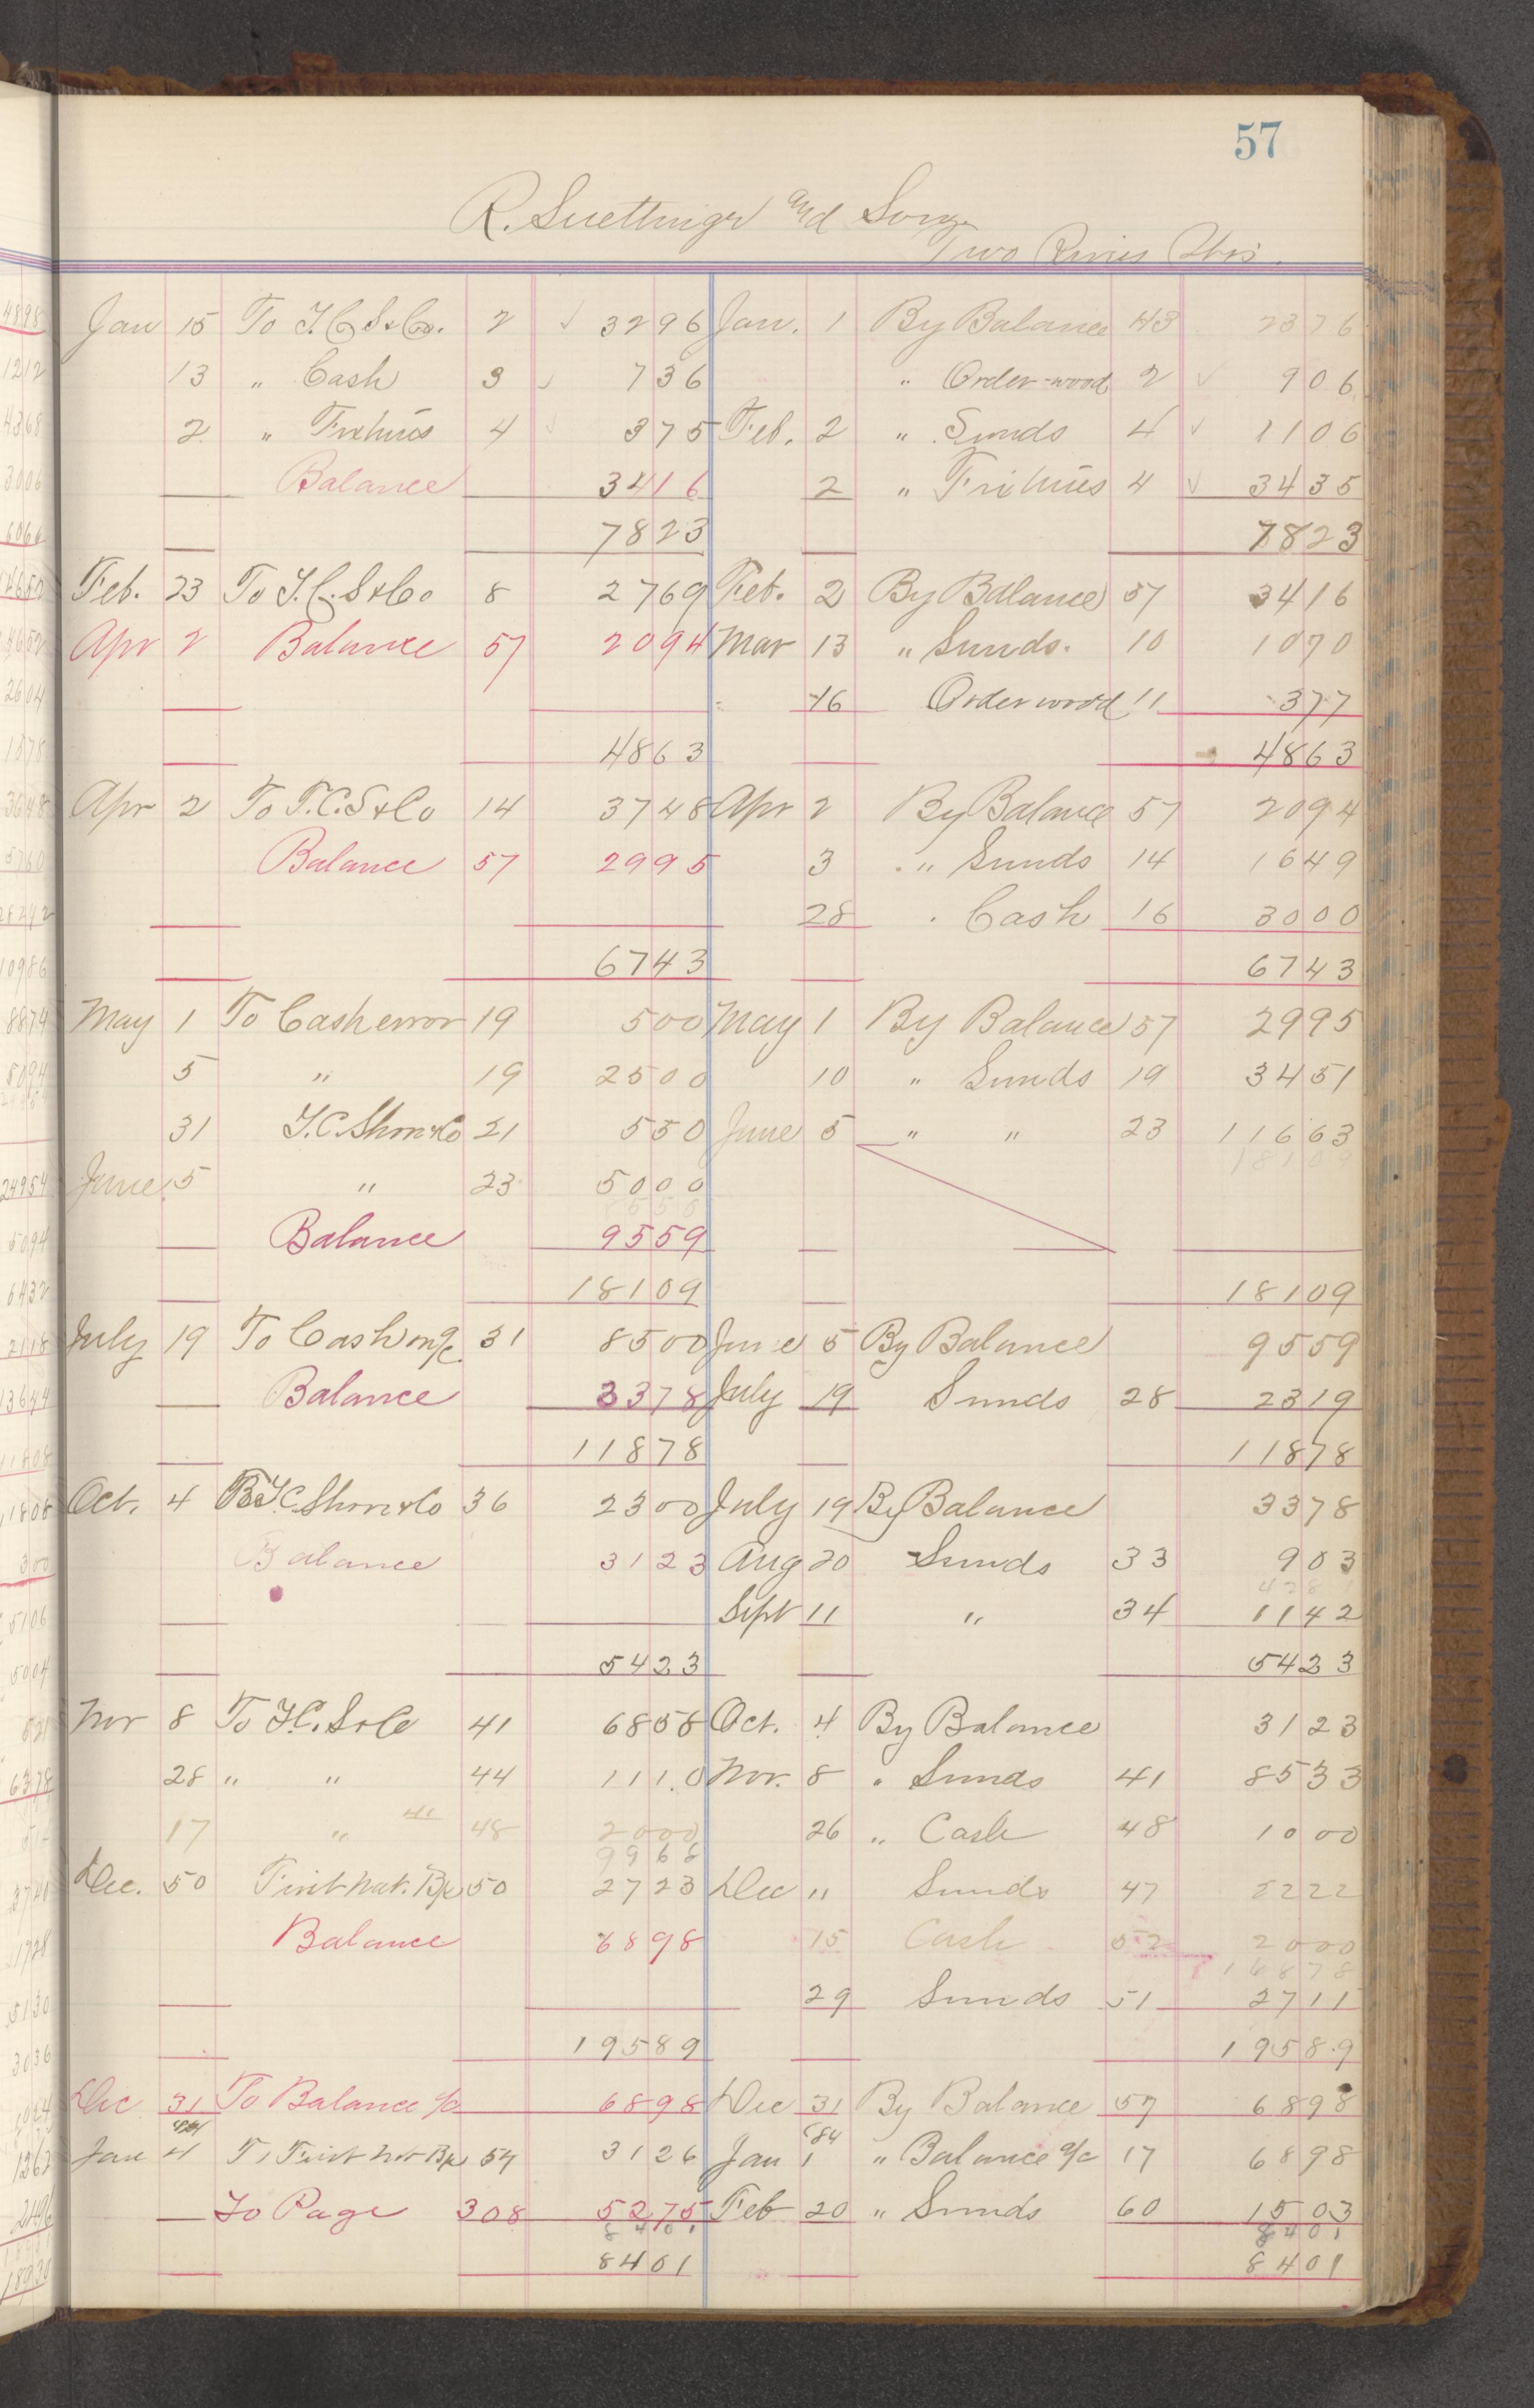 57
R. Suettinger and Song
Two Rivers Wis.
Jan 15 To J. C. S & Co. 2 ✓ 3296 Jan. 1 By Balance 43 2376
13 " Cash 3 ✓ 736 " Order wood 2 ✓ 906
2 " 4 ✓ 375 Feb. 2 " Sunds 4 ✓ 1106
Balance 3416 2 " 4 ✓ 3435
7823 7823
Feb. 23 To J. C. S & Co 8 2769 Feb. 2 By Balance 57 3416
Apr 2 Balance 57 2094 Mar 13 " Sunds. 10 1070
16 Order wood 11 377
4863 4863
Apr 2 To J. C. S & Co 14 3748 Apr 2 By Balance 57 2094
Balance 57 2995 3 " Sunds 14 1649
28 Cash 16 3000
6743 6743
May 1 To Cash error 19 500 May 1 By Balance 57 2995
5 " 19 2500 10 " Sunds 19 3451
31 J. C. Shove & Co 21 550 June 5 " " 23 11663
18109
June 5 " 23 5000
8550
Balance 9559
18109 18109
July 19 To Cash on a/c 31 8500 June 5 By Balance 9559
Balance 3378 July 19 Sunds 28 2319
11878 11878
Oct. 4 J. C. Shove & Co 36 2300 July 19 By Balance 3378
Balance 3123 Aug 20 Sunds 33 903
4281
Sept 11 " 34 1142
5423 5423
Nov 8 To J. C. S & Co 41 6858 Oct. 4 By Balance 3123
28 " " 44 111.0 Nov. 8 " Sunds 41 8533
17 " 41 48 2000 26 " Cash 48 1000
9968
Dec. 50 First Nat. Bk 50 2723 Dec " Sunds 47 2222
Balance 6898 15 Cash 52 2000
16878
29 Sunds 51 2711
19589 19589
Dec 31 To Balance a/c 6898 Dec 31 By Balance 57 6898
84
Jan 4 To First Nat Bk 54 3126 Jan 1 " Balance a/c 17 6898
To Page 308 5275 Feb 20 " Sunds 60 1503
8401 8401
8401 8401